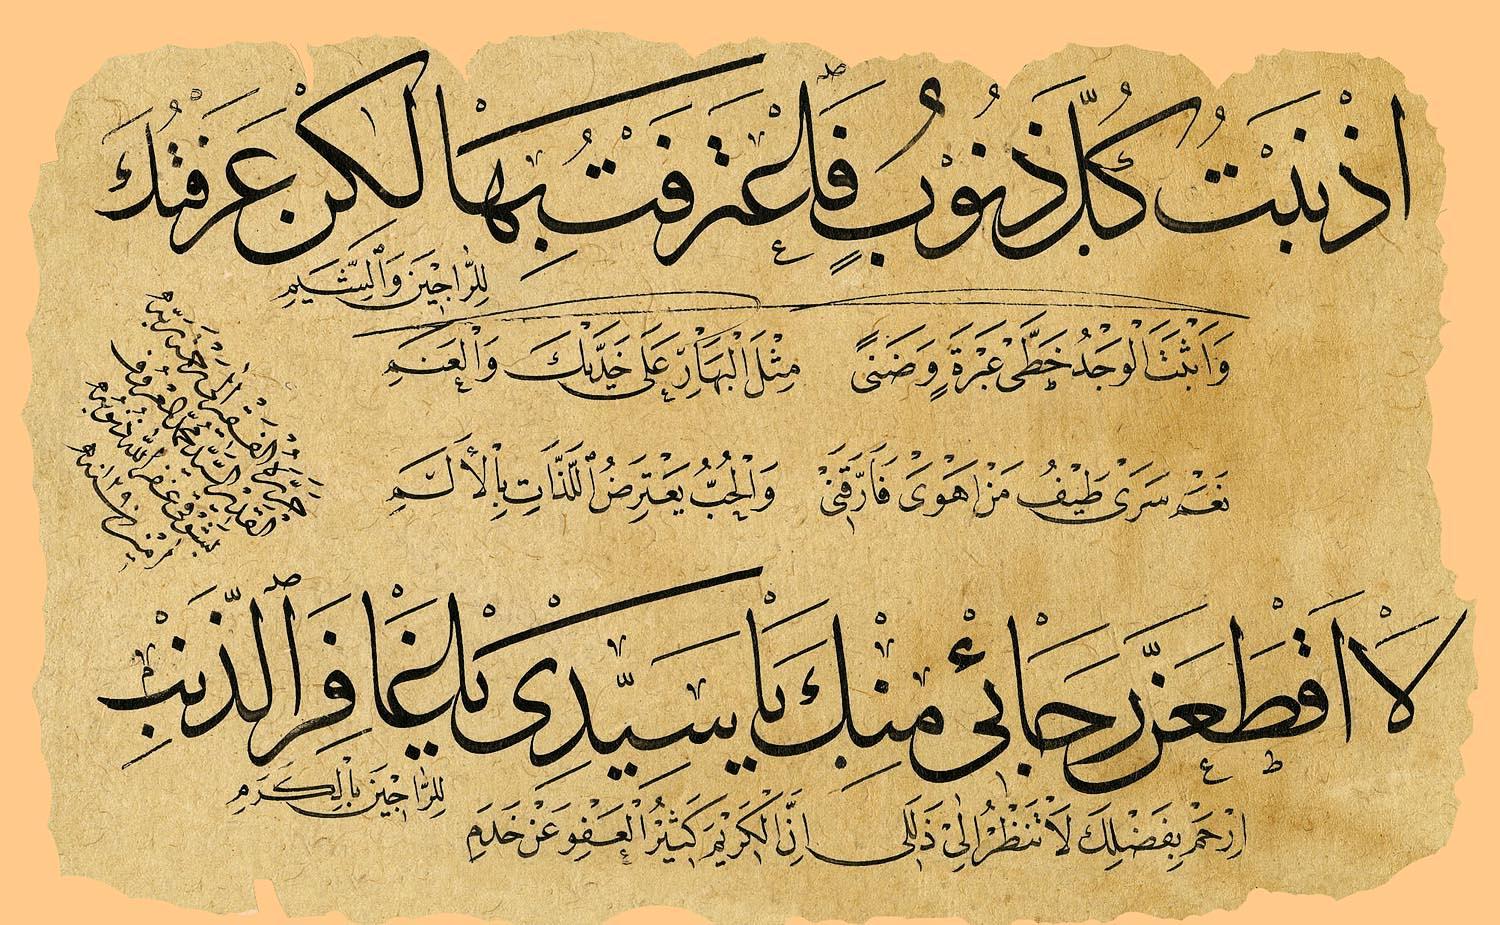 اذنبت كل ذنوب فاعترفت بها لكن عرفتك
للراجين والشيم
وَاَثْبَتَ الْوَجْدُ خَطَّيْ عَبْرَةٍ وَضَنًى مِثْلَ الْبَهَارِ عَلٰى خَدَّيْكَ وَالْعَنَمِ
نَعَمْ سَرٰى طَيْفُ مَنْ اَهْوٰى فَاَرَّقَنِيْ وَالْحُبُّ يَعْتَرِضُ اللَّذَّاتِ بِالْاَلَمِ
لا اقطعن رجائي منك يا سيدي يا غافر الذنب
للراجين بالكرم
اِرْحَمْ بِفَضْلِكَ لَا تَنْظُرْ اِلٰى ذَلَلِي اِنَّ الْكَرِيْمَ كَثِيْرُ الْعَفْوِ عَنْ خَدَمِ
السيد محمد